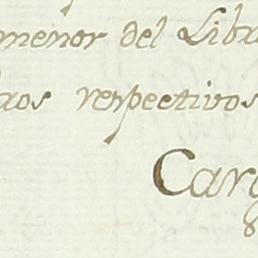 menor del Libr
aos respectivos
Carg